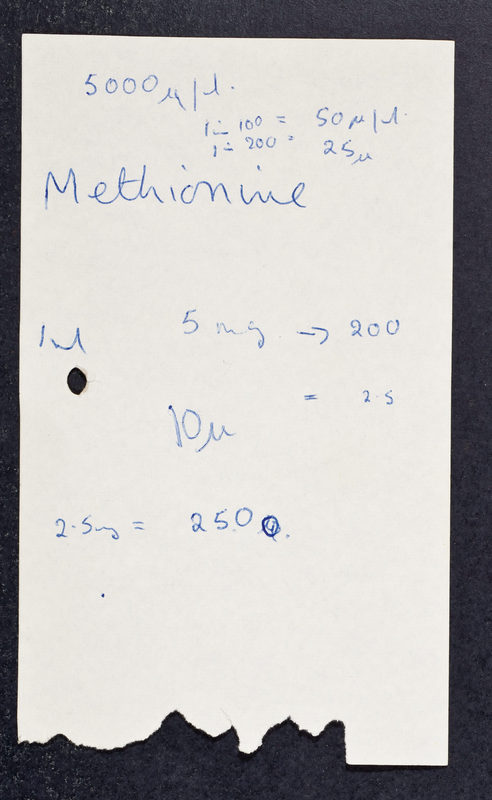 5000µ/ml.
1 in 100 = 50µ/ml.
1 in 200 = 25µ
Methionine
1ml 5 mg → 200
= 2.5
10µ
2.5mg = 250